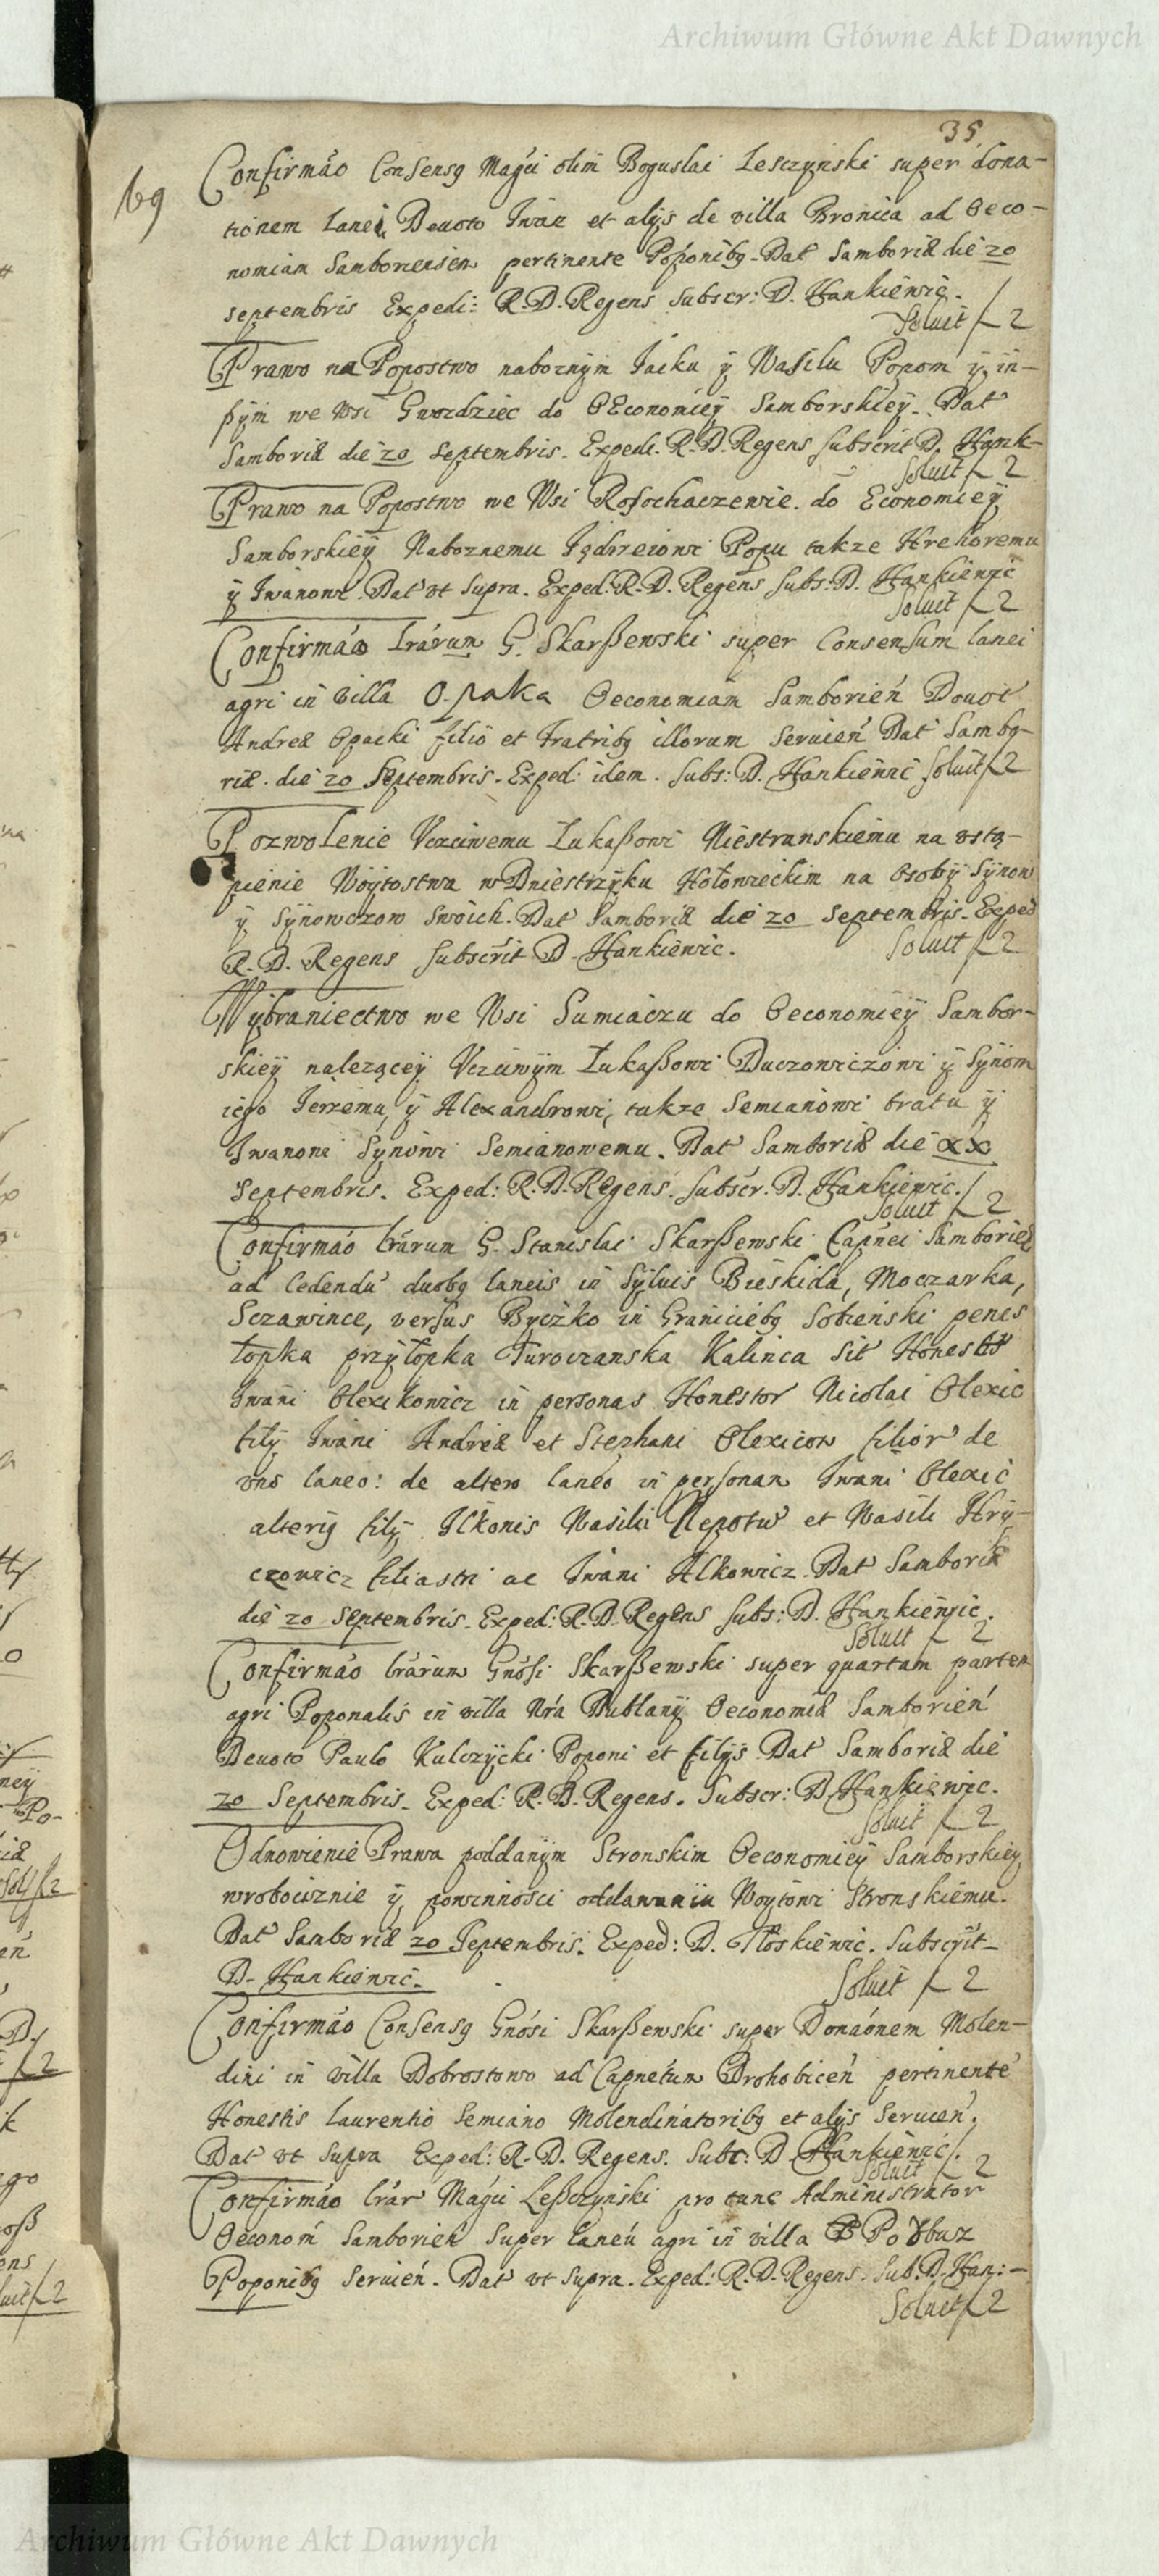 Archiwum Główne Akt Dawnych
35
69
Confirmáo Consensq Magci olim Boguslai Lesczynski super dona-
tionem Lanei Deuoto Iwan et alÿs de villa Bronica ad Oeco-
nomiam Samboriensem pertinente Poponibq. Dat Samboriæ die 20
septembris Expedi: R.D. Regens Subscr: D. Hankiewic.
Soluit f 2
Prawo na Popostwo naboznÿm Iacku ÿ Wasilu Popom ÿ in-
ßÿm we Wsi Gwozdziec do OEconomiey Samborskieÿ. Dat
Samboriæ die 20 Septembris. Exped. R.D. Regens subscrit D. Hank-
Soluit f 2
Prawo na Popostwo we Wsi Rosochaczewie do Economieÿ
Samborskieÿ Naboznemu Iędrzeiowi Popu takze Hrehoremu
ÿ Iwanowi. Dat vt supra. Exped. R.D. Regens subs: D. Hankiewic
Soluit f 2
Confirmáo lrárum G. Skarßewski super Consensum lanei
agri in villa Opaka Oeconomiam Samborień Douot
Andreæ Opacki filio et Fratribq illorum seruień Dat Sambo-
riæ die 20 Septembris. Exped: idem. Subs: D. Hankiewic Soluit f 2
Pozwolenie Vczciwemu Łukaßowi Niestranskiemu na vstą-
pienie Woÿtostwa w Dniestrzÿku Hołowieckim na Osobÿ Sÿnow
ÿ Sÿnowczow swoich. Dat Samboriæ die 20 septembris. Exped
R.D. Regens subscrit D. Hankiewic.
Soluit f 2
Wÿbraniectwo we Wsi Sumiaczu do Oeconomieÿ Sambor-
skieÿ nalezącey Vczciwÿm Łukaßowi Duczowiczowi ÿ Sÿnom
iego Ierzemu ÿ Alexandrowi, takze Semianowi bratu ÿ
Iwanowi Sÿnowi Semianowemu. Dat Samboriæ die XX
septembris. Exped: R.D. Regens. Subscr. D. Hankiewic.
Soluit f 2
Confirmáo lrárum G. Stanislai Skarßewski Capnei Samborieň
ad Cedendu duobq laneis in Sÿluis Bieskida, Moczarka,
Sczawince, versus Byczko in Graniciebq Sobieński penes
Łopka przyłopka Turoczanska Kalinca sit Honest
Iwani Olexikowicz in personas Honestor Nicolai Olexic
filÿ Iwani Andreæ et Stephani Olexicow filior de
vno laneo: de altero laneo in personam Iwani Olexic
alteriq filÿ Ilkonis Wasilii Nepotu et Wasili Hrÿ-
czowicz filiastri ac Iwani Ilkowicz. Dat Samboriæ
die 20 Septembris. Exped: R.D. Regens subs: D. Hankiewic.
Soluit f 2
Confirmáo lrárum Gnósi Skarßewski super quartam partem
agri Poponalis in villa Nra Dublanÿ Oeconomiæ Samborień
Deuoto Paulo Kulczÿcki Poponi et filÿs Dat Samboriæ die
20 Septembris. Exped: R.D. Regens. Subscr: D. Hankiewic.
Soluit f 2
Odnowienie Prawa poddanÿm Stronskim Oeconomieÿ Samborskieÿ
w robociznie ÿ powinności oddawaniu Woÿtowi Stronskiemu.
Dat Samboriæ 20 Septembris. Exped: D. Subscrit
D. Hankiewic.
Soluit f 2
Confirmáo Consensq Gnósi Skarßewski super Donáonem Molen-
dini in villa Dobrostowo ad Capnetum Drohobiceń pertinente
Honestis Laurentio Semiano Molendinatoribq et alÿs seruień.
Dat vt supra Exped: R.D. Regens. Subs: D. Hankiewic.
Soluit f 2
Confirmáo lrár Magci Leßczÿnski pro tunc Administrator
Oeconom Samborien super laneu agri in villa Podbusz
Poponibq seruień. Dat vt supra. Exped: R.D. Regens. Sub. D. Han:-
Soluit f 2
Archiwum Główne Akt Dawnych